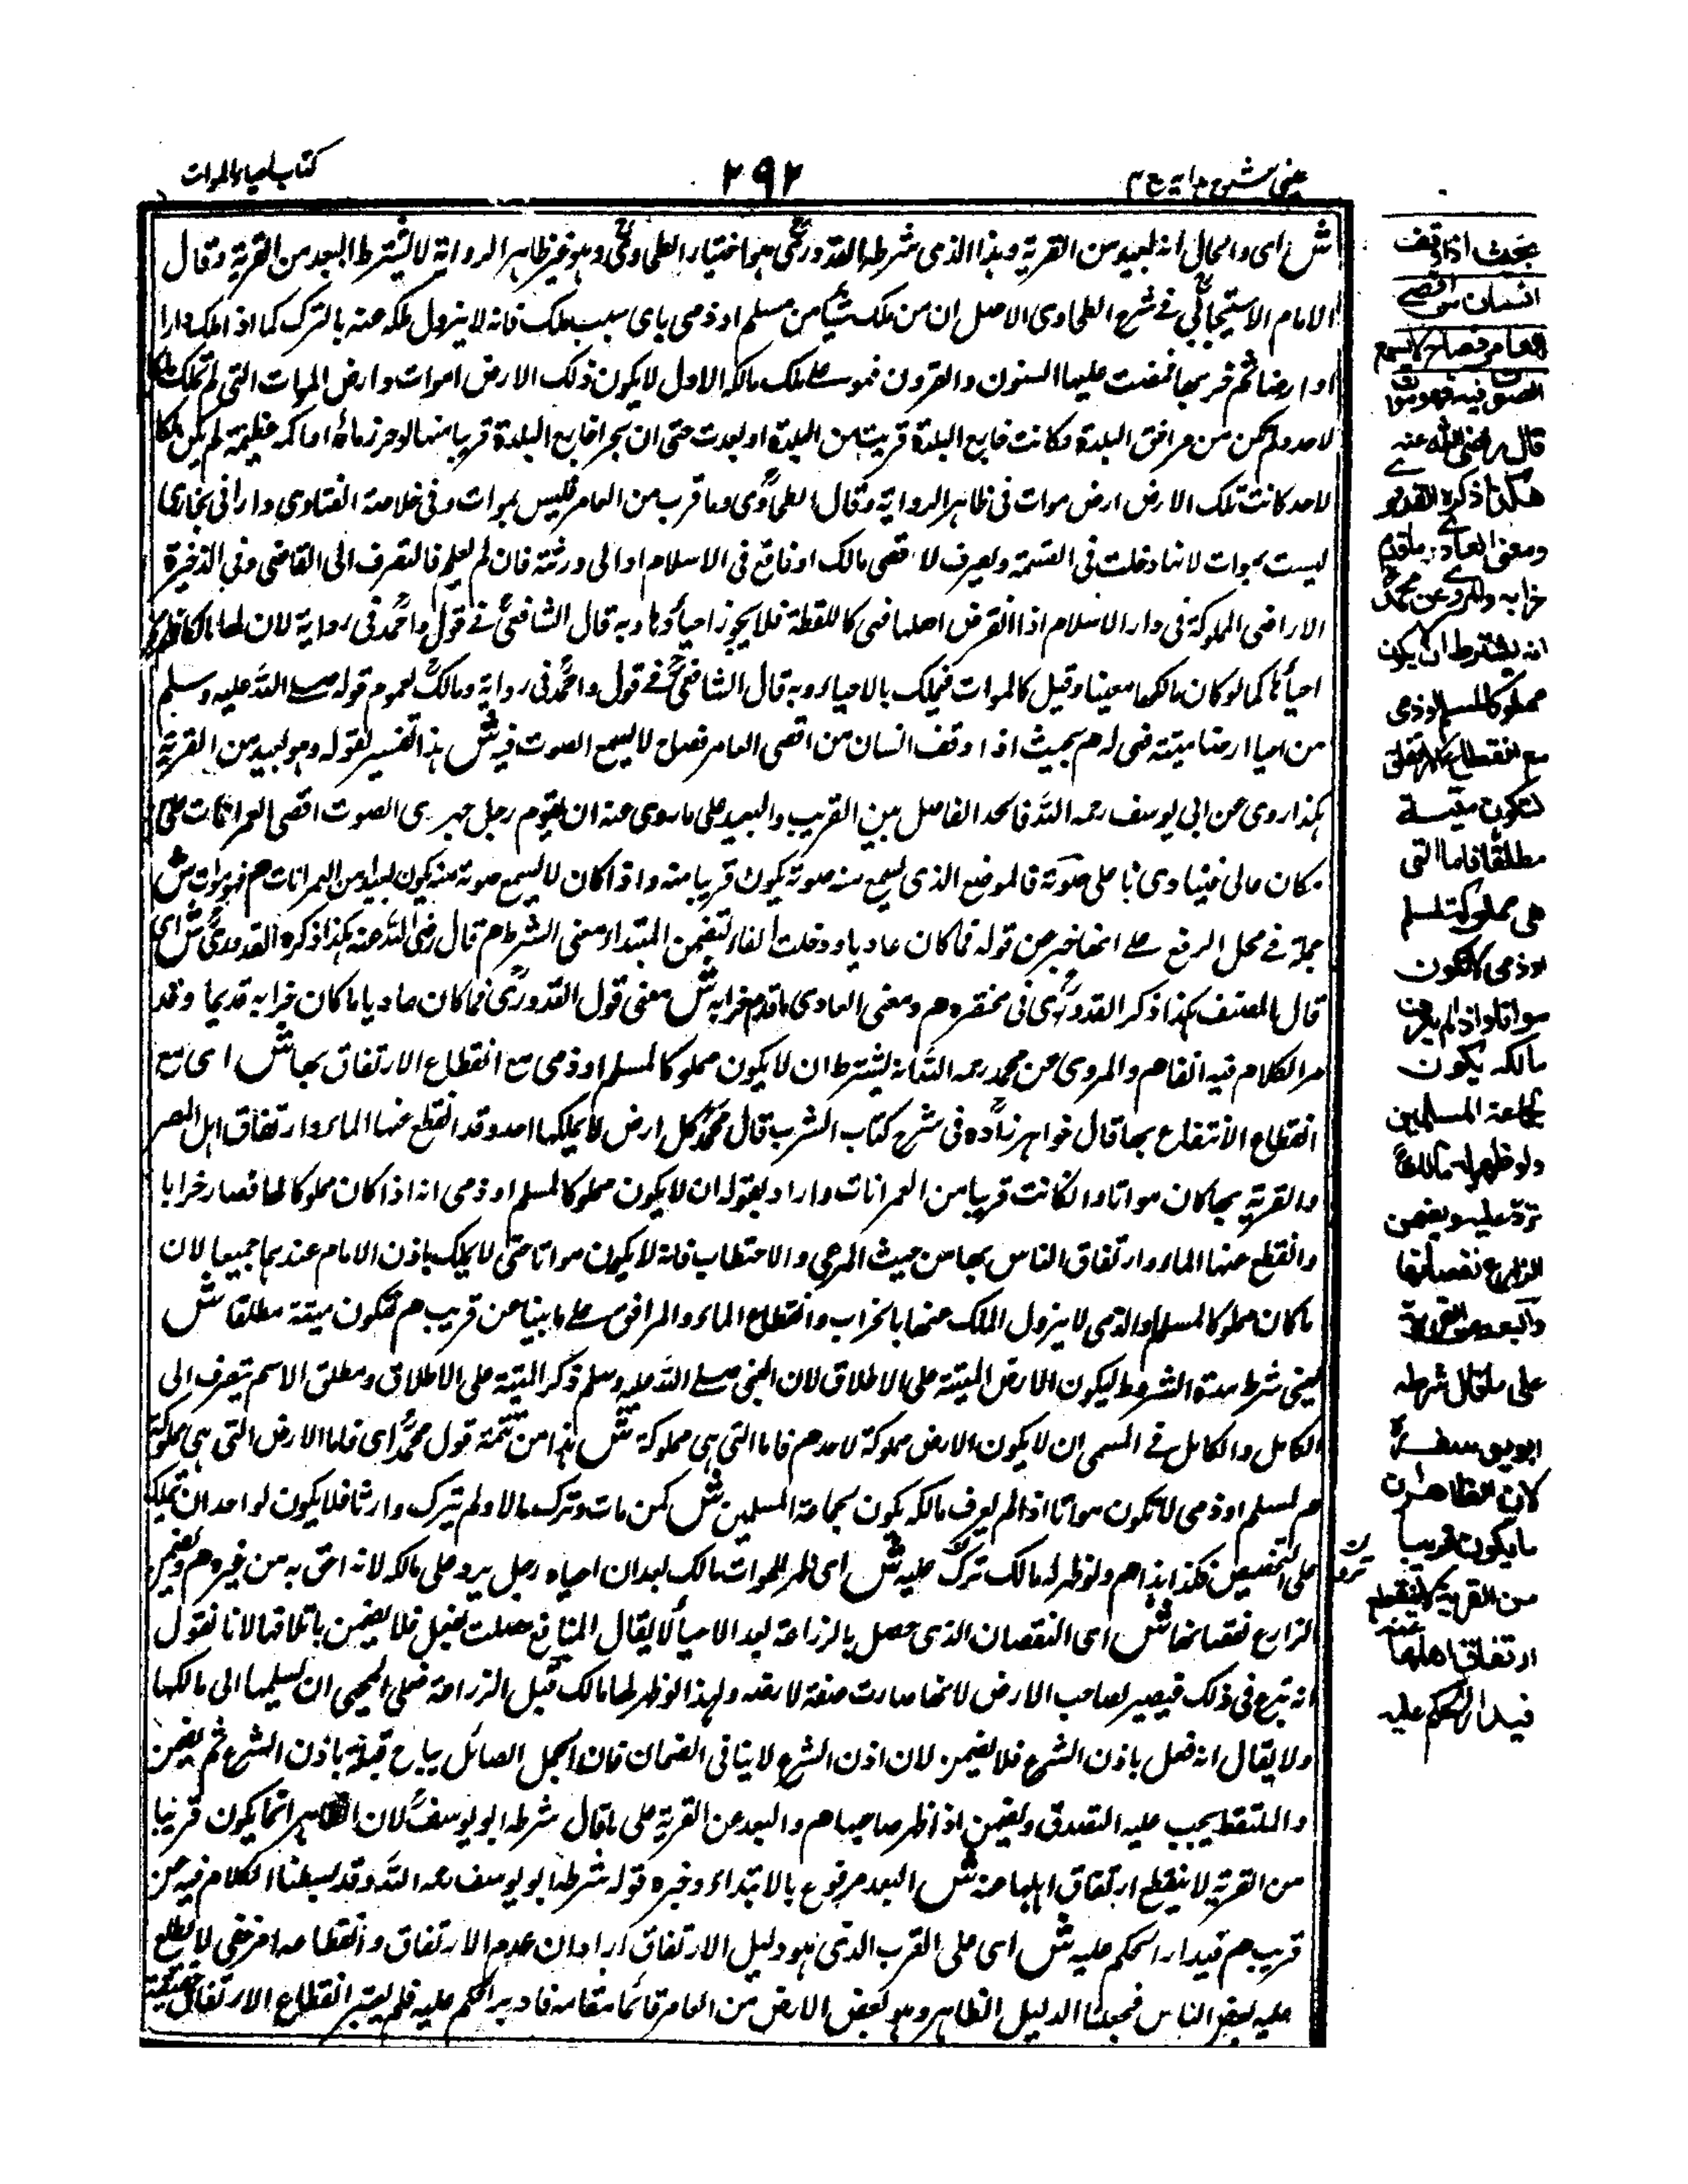 عینی شرح هدایة ج ٣
٢٩٢
كتاب احياء الموات
ش اى والحال انه بعيد من القرية وهذا الذى شرطه القدورى هو اختيار الطحاوى وهو غير ظاهر الرواية لا يشترط البعد من القرية وقال
الامام الاسبيجابى فى شرح الطحاوى الاصل ان من ملك شيئا من مسلم او ذمى باى سبب ملك فانه لا يزول ملكه عنه بالترك كما اذا ملك دارا
او ارضا ثم خربها فمضت عليها السنون والقرون فهو على ملك مالكه الاول لا يكون ذلك الارض اموات وارض الموات التى لم تملك ملكا
لاحد ولم تكن من مرافق البلدة وكانت خارج البلدة قربت من البلدة او بعدت حتى ان بحرا خارج البلدة قريبا منها لو جزر ماؤه او اكمه عظيمة لم يكن ملكا
لاحد كانت تلك الارض ارض موات فى ظاهر الرواية وقال الطحاوى وما قرب من العامر فليس بموات وفى خلاصة الفتاوى واراضى بخارى
ليست بموات لانها دخلت فى القسمة ويصرف لا قصى مالك او فاتح فى الاسلام او الى ورثته فان لم يعلم فالتصرف الى القاضى وفى الذخيرة
الاراضى المملوكة فى دار الاسلام اذا انقرض اهلها فهى كاللقطة فلا يجوز احياؤها وبه قال الشافعى فى قول واحمد فى رواية لان لها مالكا فلم يجز
احياؤها كما لو كان مالكها معينا وقيل كالموات فيملك بالاحياء وبه قال الشافعى فى قول واحمد فى رواية ومالك لعموم قوله صلى الله عليه وسلم
من احيا ارضا ميتة فهى له هم بحيث اذا وقف انسان من اقصى العامر فصاح لا يسمع الصوت فيه ش هذا تفسير لقوله وهو بعيد من القرية
هكذا روى عن ابى يوسف رحمه الله فالحد الفاصل بين القريب والبعيد على ما روى عنه ان يقوم رجل جهرى الصوت اقصى العمرانات على
مكان عالى فينادى باعلى صوته فالموضع الذى يسمع منه صوته يكون قريبا منه واذا كان لا يسمع صوته منه يكون بعيدا من العمرانات هم فهو موات ش
جملة فى محل الرفع على انها خبر من قوله فما كان عاديا ودخلت الفاء لتضمن المبتدا معنى الشرط هم قال رضى الله عنه هكذا ذكره القدورى ش اى
قال المصنف هكذا ذكر القدورى فى مختصره هم ومعنى العادى ما قدم خرابه ش معنى قول القدورى فما كان عاديا ما كان خرابه قديما وقد
مر الكلام فيه انفا هم والمروى عن محمد رحمه الله انه يشترط ان لا يكون مملوكا لمسلم او ذمى مع انقطاع الارتفاق بها ش اى مع
انقطاع الانتفاع بها قال خواهر زاده فى شرح كتاب الشرب قال محمد كل ارض لا يملكها احد وقد انقطع عنها الماء وارتفاق اهل المصر
والقرية بها كان مواتا وان كانت قريبا من العمرانات واراد بقوله ان لا يكون مملوكا لمسلم او ذمى انه اذا كان مملوكا لها فصار خرابا
وانقطع عنها الماء وارتفاق الناس بها من حيث المرعى والاحتطاب فانه لا يكون مواتا حتى لا يملك باذن الامام عندهما جميعا لان
ما كان مملوكا لمسلم والذمى لا يزول الملك عنها بالخراب وانقطاع الماء والمرافق على ما بينا عن قريب هم فتكون ميتة مطلقا ش
يعنى شرط هذه الشروط ليكون الارض الميتة على الاطلاق لان النبى صلى الله عليه وسلم ذكر الميتة على الاطلاق ومطلق الاسم يتصرف الى
الكامل والكامل فى المسمى ان لا يكون الارض مملوكة لاحد هم فاما التى هى مملوكة ش هذا من تتمة قول محمد اى فاما الارض التى هى مملوكة
هم لمسلم او ذمى لا تكون مواتا اذا لم يعرف مالكه يكون لجماعة المسلمين ش كمن مات وترك مالا ولم يترك وارثا فلا يكون لواحد ان يملك
على التخصيص فكذا هذا هم ولو ظهر له مالك ترد عليه ش اى ظهر للموات مالك بعد ان احياه رجل يرد على مالكه لانه احق به من غيره هم ويضمن
الزارع نقصانها ش اى النقصان الذى حصل بالزراعة بعد الاحياء لا يقال المنافع حصلت بفعل فلا يضمن باتلافها لانا نقول
انه تبرع فى ذلك فيصير لصاحب الارض لانها صارت صفة لارضه ولهذا لو ظهر لها مالك قبل الزراعة فعلى المحيى ان يسلمها الى مالكها
ولا يقال انه فعل باذن الشرع فلا يضمن لان اذن الشرع لا ينافى الضمان فان الجمل الصائل يباح قتله باذن الشرع ثم يضمن
والملتقط يجب عليه التصدق ويضمن اذا ظهر صاحبها هم والبعد عن القرية على ما قال شرطه ابو يوسف لان الظاهر ان ما يكون قريبا
من القرية لا ينقطع ارتفاق اهلها عنه ش البعد مرفوع بالابتداء وخبره قوله شرطه ابو يوسف رحمه الله وقد بسطنا الكلام فيه عن
قريب هم فيدار الحكم عليه ش اى على القرب الذى هو دليل الارتفاق اراد ان عدم الارتفاق وانقطاعه امر خفى لا يطلع
عليه بعض الناس فجعلنا الدليل الظاهر وهو بعض الارض من العامر قائما مقامه فاد ير الحكم عليه فلم يعتبر انقطاع الارتفاق حقيقة
بحيث اذا وقف
انسان من اقصى
العامر فصاح لا يسمع
الصوت فيه فهو موات
قال رضى الله عنه
هكذا ذكره القدورى
ومعنى العادى ما قدم
خرابه والمروى عن محمد
انه يشترط ان لا يكون
مملوكا لمسلم او ذمى
مع انقطاع الارتفاق
لتكون ميتة
مطلقا فاما التى
هى مملوكة لمسلم
او ذمى لا تكون
مواتا واذا لم يعرف
مالكه يكون
لجماعة المسلمين
ولو ظهر له مالك
ترد عليه ويضمن
الزارع نقصانها
والبعد عن القرية
على ما قال شرطه
ابو يوسف
لان الظاهر ان
ما يكون قريبا
من القرية لا ينقطع
ارتفاق اهلها عنه
فيدار الحكم عليه